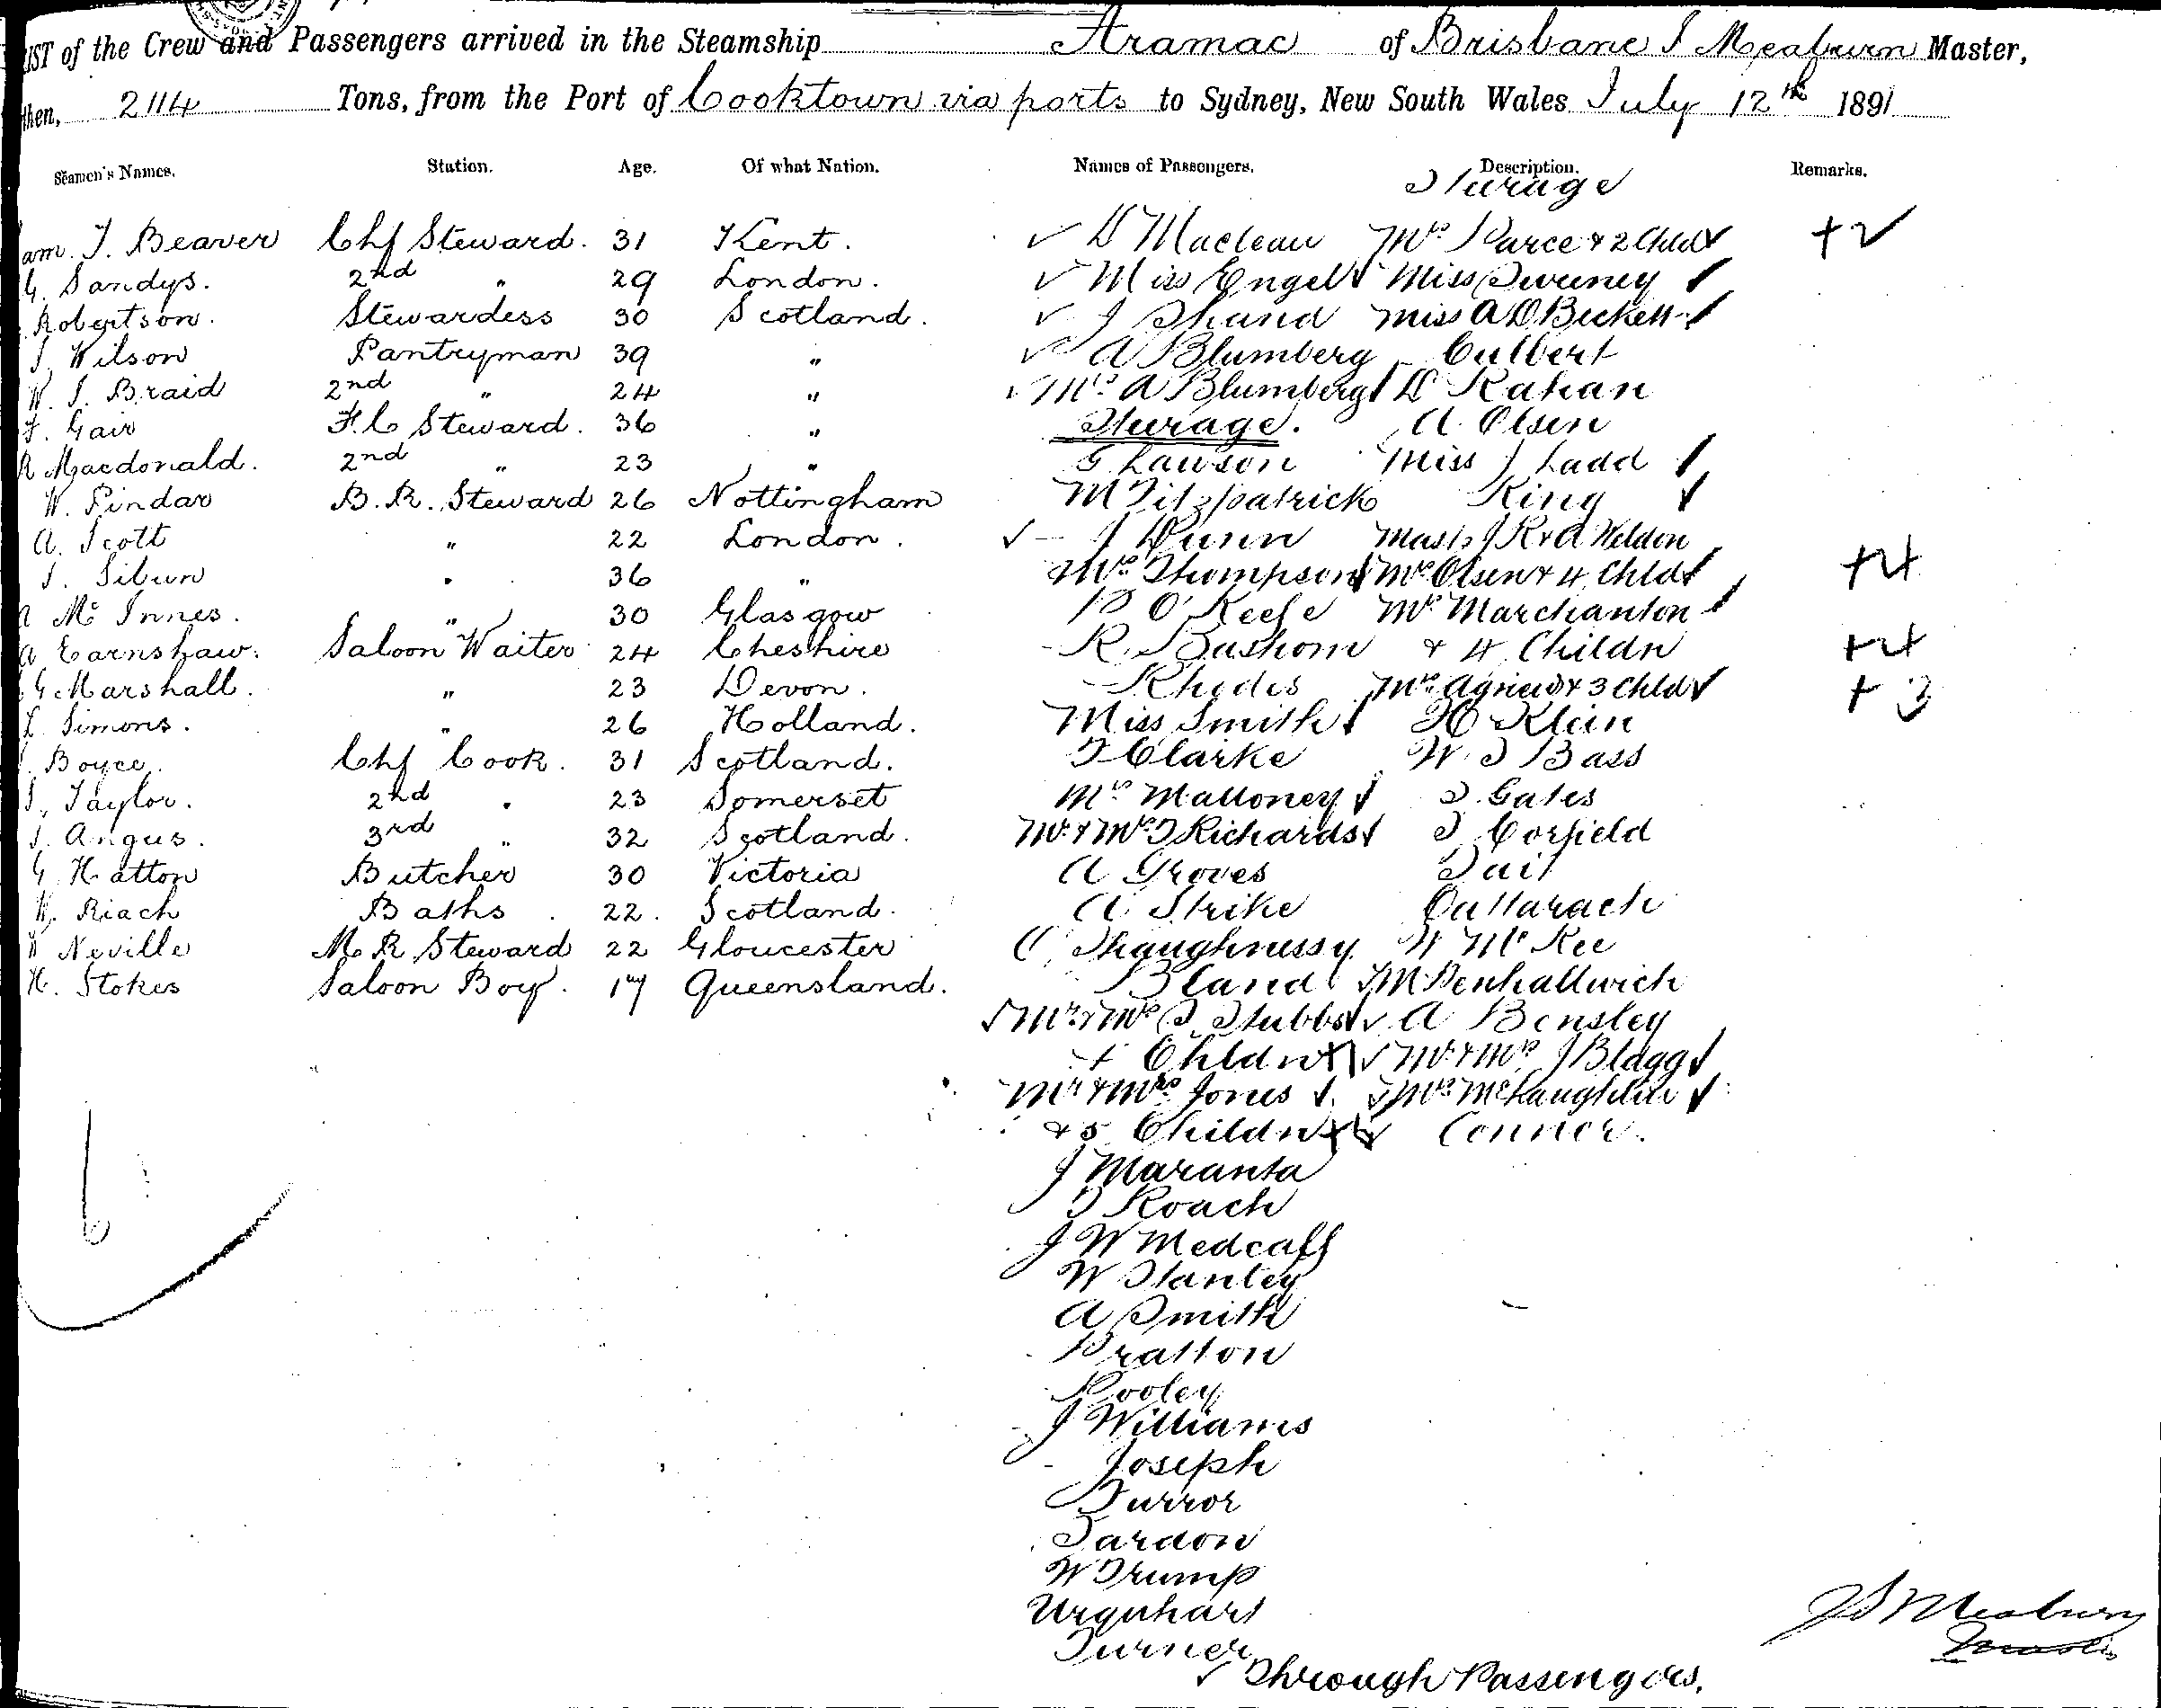 LIST of the Crew and Passengers arrived in the Steamship Aramac of Brisbane J Meaburn Master,
then, 2114 Tons, from the Port of Cooktown via ports to Sydney, New South Wales July 12th 1891
Seamen's Names. Station. Age. Of what Nation. Names of Passengers. Description. Remarks.
Sturage
J. Beaver Chf Steward. 31 Kent. ✓ D Maclean Mrs Parce & 2 Chld ✓ + 2
G. Sandys. 2nd " 29 London. ✓ Miss Engel ✓ Miss Sweeney ✓
Robertson. Stewardess 30 Scotland. ✓ J Shand Miss A D Beckett ✓
J. Wilson Pantryman 39 " ✓ A Blumberg Culbert
W. J. Braid 2nd " 24 " ✓ Mrs A Blumberg ✓ D Kahan
F. Gair F. C Steward. 36 " Sturage. A. Olsen
R Macdonald. 2nd " 23 " G Lawson Miss J Ladd ✓
W. Pindar B. R. Steward 26 Nottingham M Fitzpatrick King ✓
A. Scott " 22 London. ✓ - J Dunn Mast's J R & A Weldon
J. Sibun " 36 " Mrs Thompson ✓ Mrs Olsen & 4 Chld ✓ + 4
A Mc Innes. " 30 Glasgow P O'Keefe Mrs Marchanton ✓
A Earnshaw. Saloon Waiter 24 Cheshire R. Bashom & 4 Childn + 4
G Marshall. " 23 Devon. Rhodes Mrs Agnew & 3 Chld ✓ + 3
L. Simons. " 26 Holland. Miss Smith ✓ H Klein
Boyce. Chf Cook. 31 Scotland. T Clarke W. J Bass
J. Taylor. 2nd " 23 Somerset Mrs Malloney ✓ S. Gates
J. Angus. 3rd " 32 Scotland. Mr & Mrs T Richards ✓ T Corfield
G Hatton Butcher 30 Victoria A Groves Tait
W. Riach Baths. 22. Scotland. A. Strike
W Neville M. R. Steward 22 Gloucester O'Shaughnessy W McKee
H. Stokes Saloon Boy. 17 Queensland. Bland ✓ M Penhallwich
✓ Mr & Mrs S Stubbs ✓ ✓ A Bensley
+ Chldn ✓ Mr & Mrs J Blagg ✓
Mr & Mrs Jones ✓. ✓ Mrs McLaughlin ✓
& 5 Childn ✓ Connor.
J Maranta
T Roach
J W Medcalf
W Stanley
A Smith
Bratton
Pooley
J Williams
Joseph
Durror
Tardon
W Trump
Urquhart
Turner
✓ Through Passengers.
J S Meaburn
Master